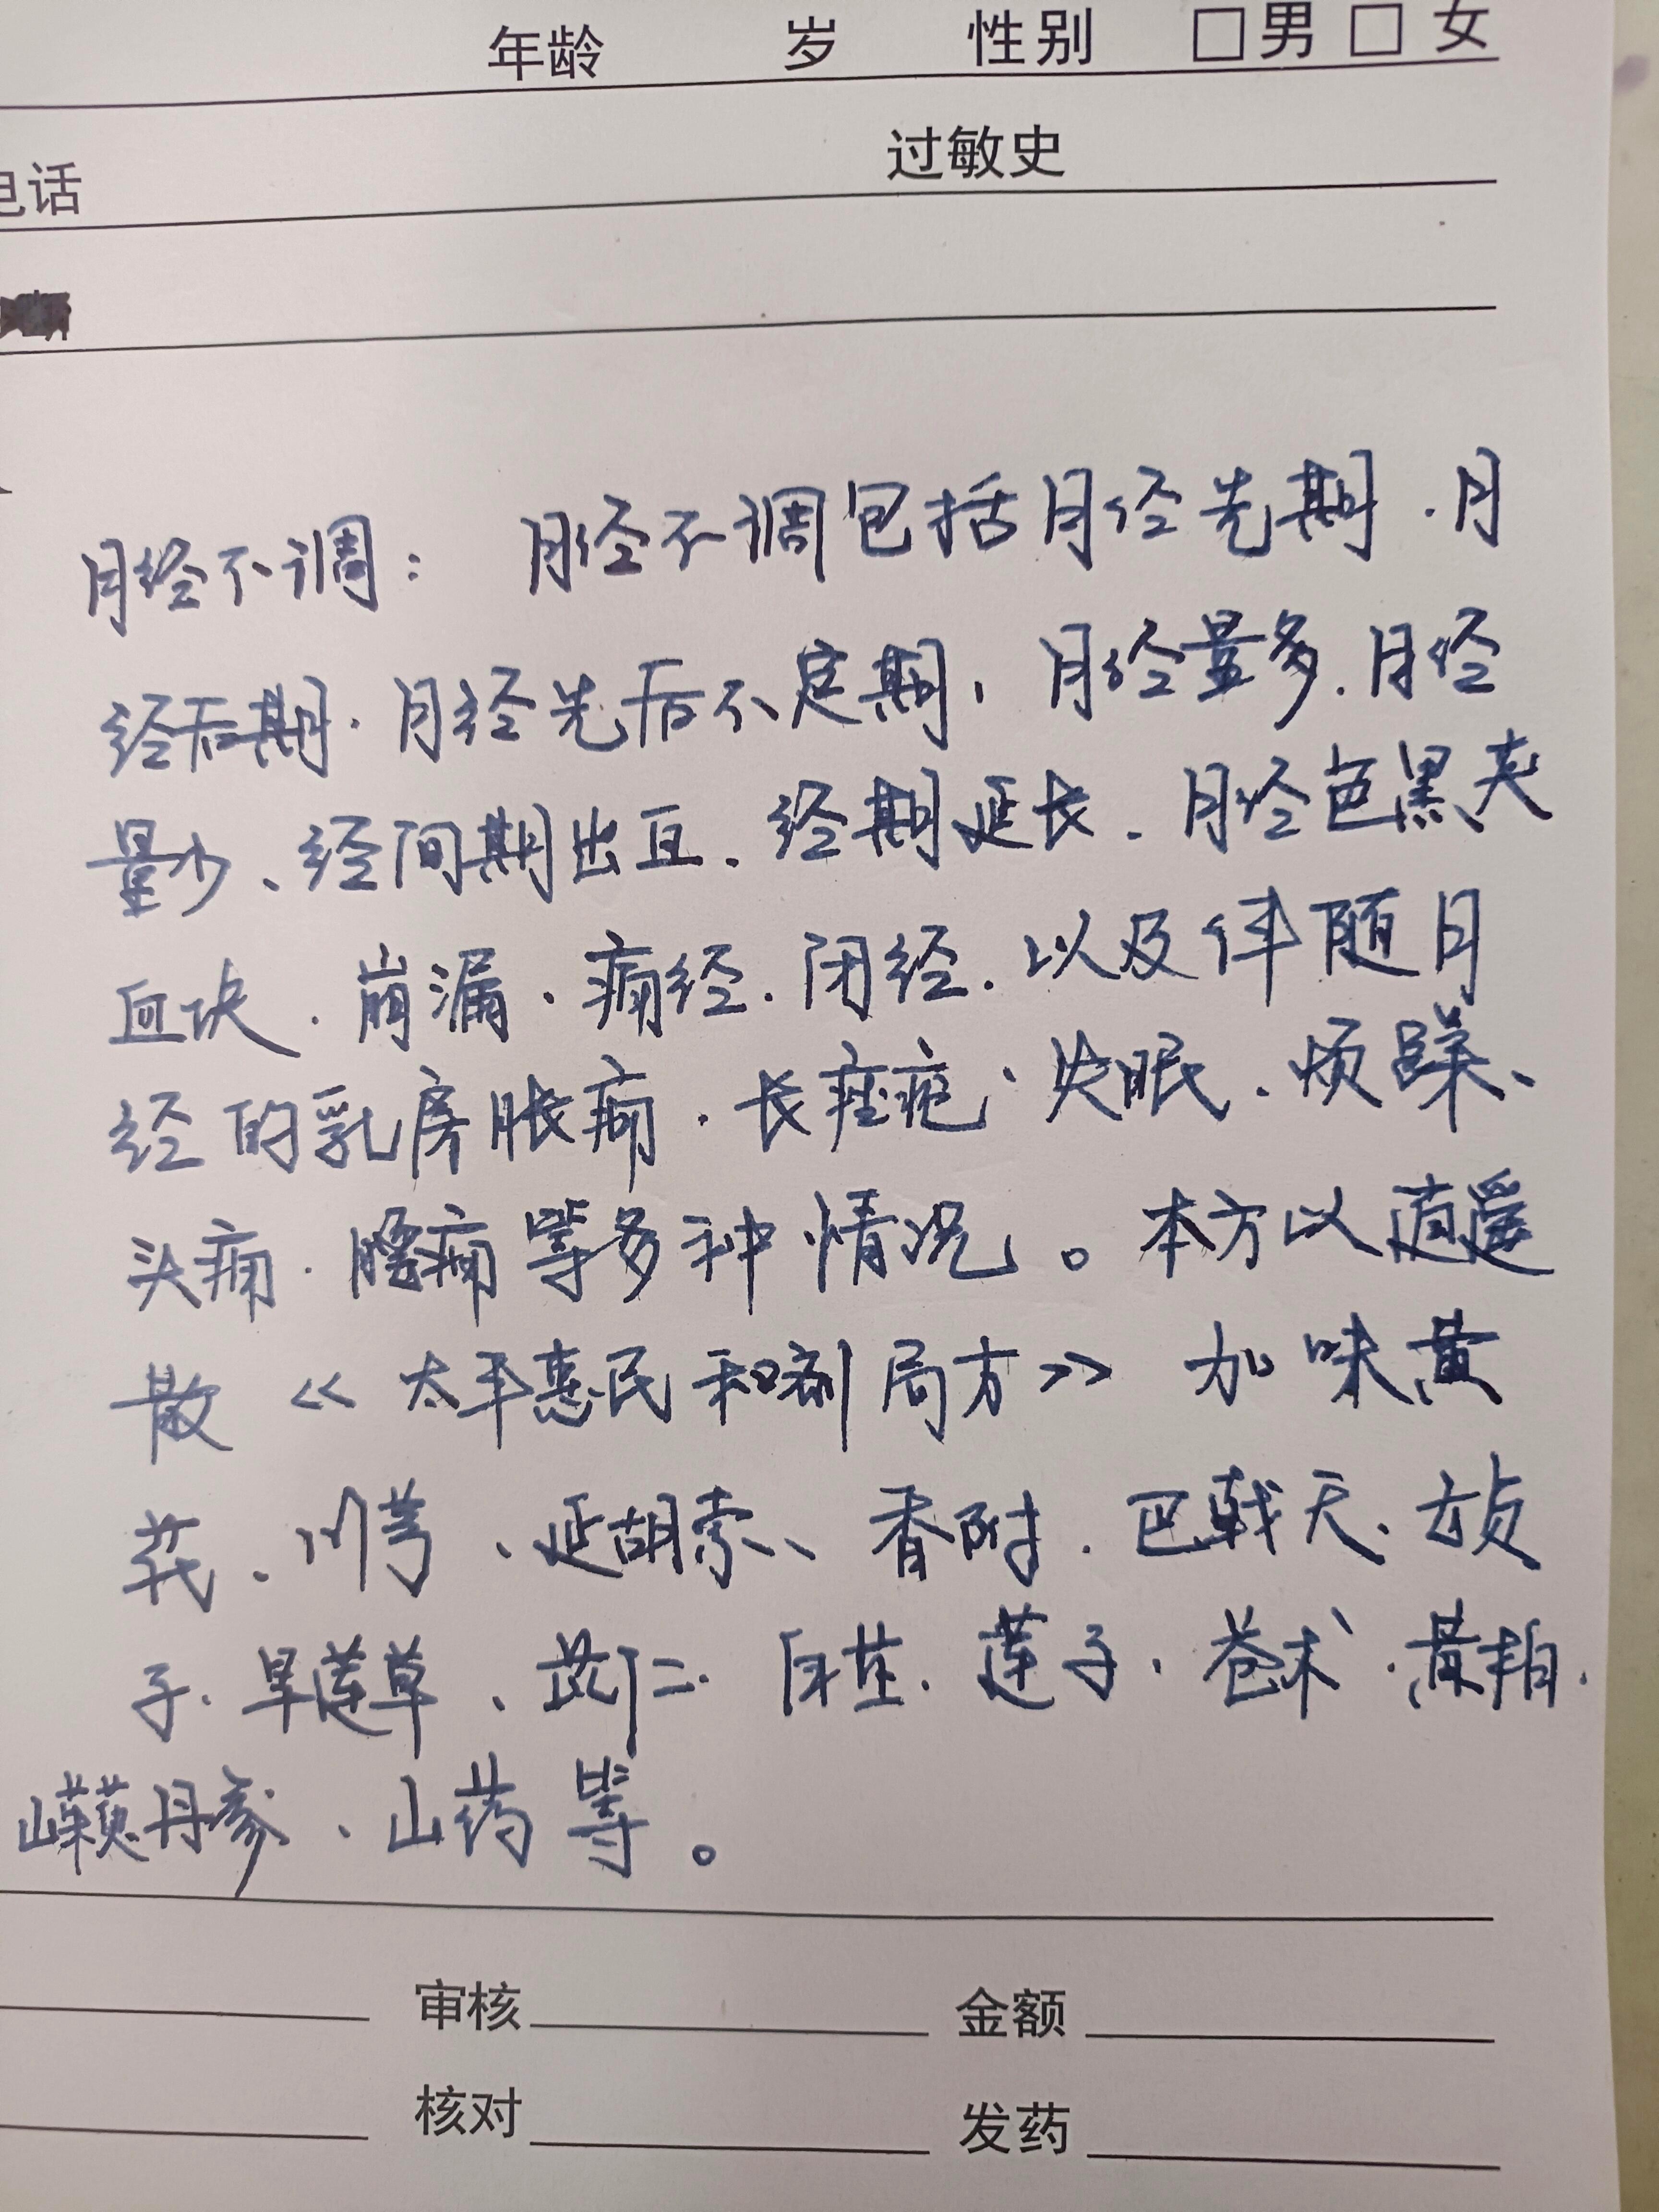 年龄 岁 性别 □男 □女
电话 过敏史
月经不调： 月经不调包括月经先期、月
经后期、月经先后不定期、月经量多、月经
量少、经间期出血、经期延长、月经色黑夹
血块、崩漏、痛经、闭经、以及伴随月
经的乳房胀痛、长痤疮、失眠、烦躁、
头痛、腰痛等多种情况。本方以逍遥
散《太平惠民和剂局方》加味黄
芪、川芎、延胡索、香附、巴戟天、女贞
子、旱莲草、芡仁、白芷、莲子、苍术、黄柏、
山茱萸、丹参、山药等。
审核 金额
核对 发药